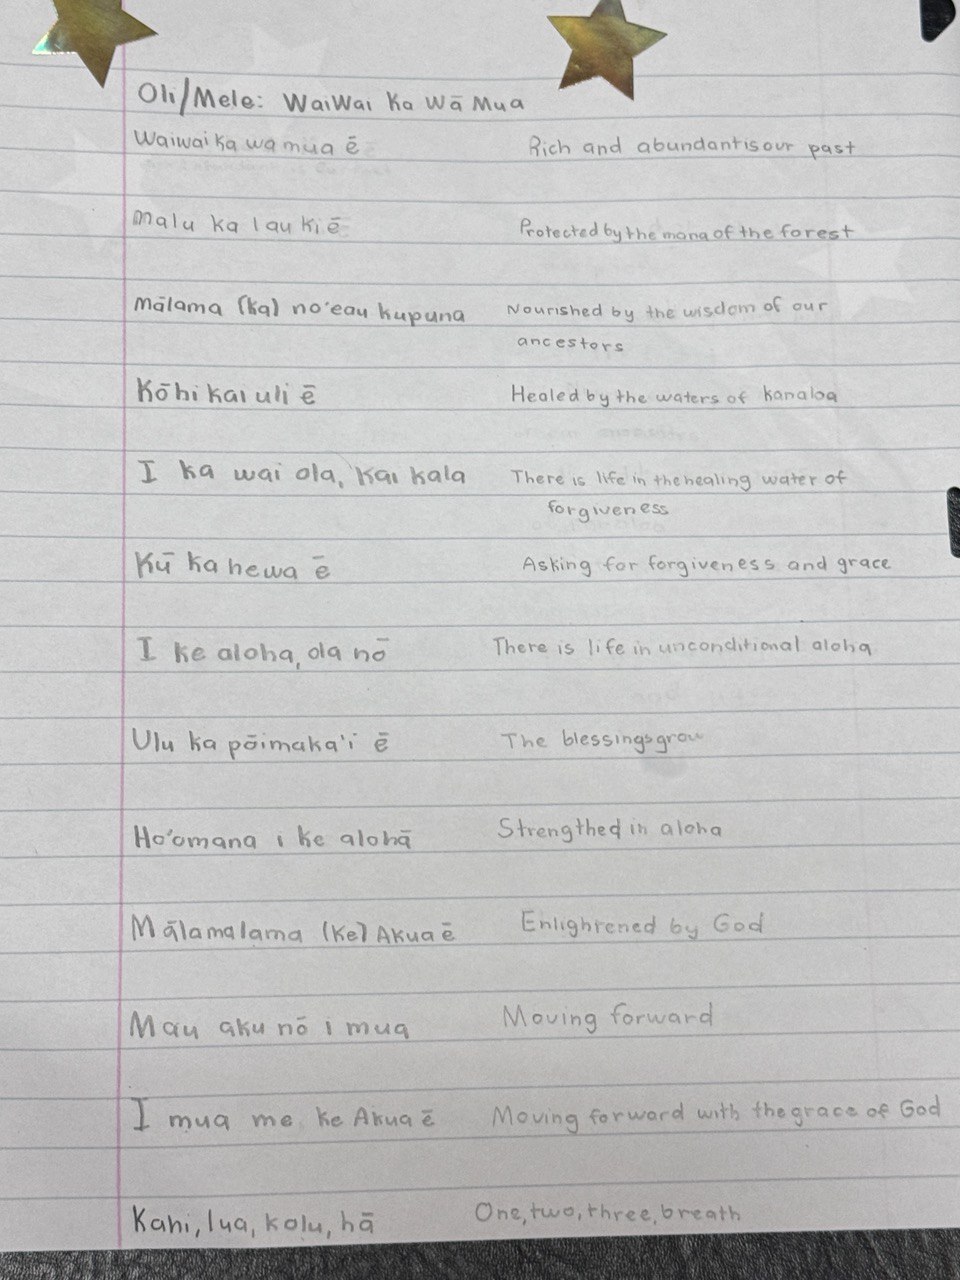 Oli/Mele: WaiWai Ka Wā Mua
Waiwai ka wa mua ē Rich and abundant is our past
Malu ka lau ki ē Protected by the mana of the forest
Mālama (ka) no'eau kupuna Nourished by the wisdom of our
ancestors
Kōhi kai uli ē Healed by the waters of kanaloa
I ka wai ola, kai kala There is life in the healing water of
forgiveness
Kū ka hewa ē Asking for forgiveness and grace
I ke aloha, ola nō There is life in unconditional aloha
Ulu ka pōimaka'i ē The blessings grow
Ho'omana i ke alohā Strengthed in aloha
Mālamalama (Ke) Akua ē Enlightened by God
Mau aku nō i mua Moving forward
I mua me ke Akua ē Moving forward with the grace of God
Kahi, lua, kolu, hā One, two, three, breath